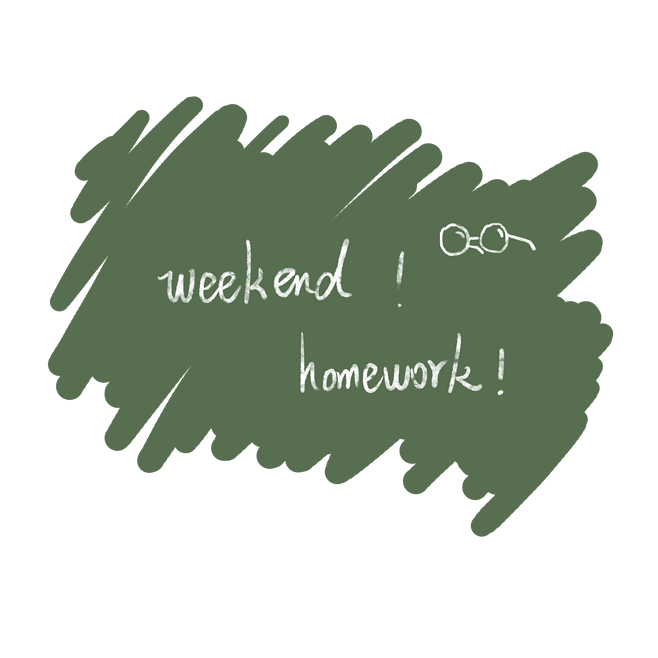 weekend !
homework !